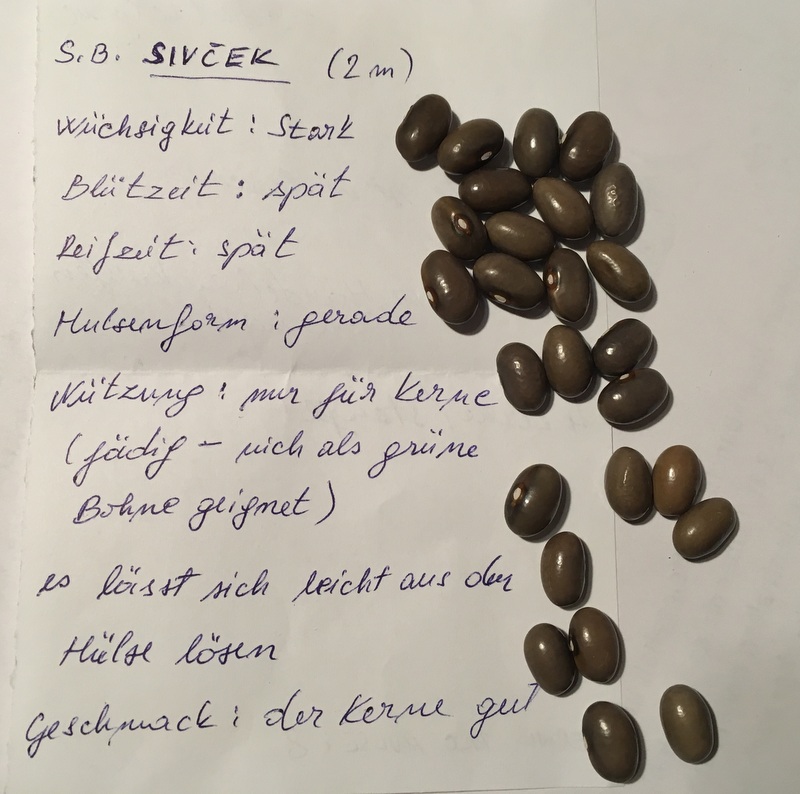 S.B. SIVČEK (2m)
Wüchsigkeit: Stark
Blützeit: spät
Reifzeit: spät
Hülsenform: gerade
Nützung: nur für Kerne
(fädig - nich als grüne
Bohne geignet)
es lässt sich leicht aus der
Hülse lösen
Geschmack: der Kerne gut